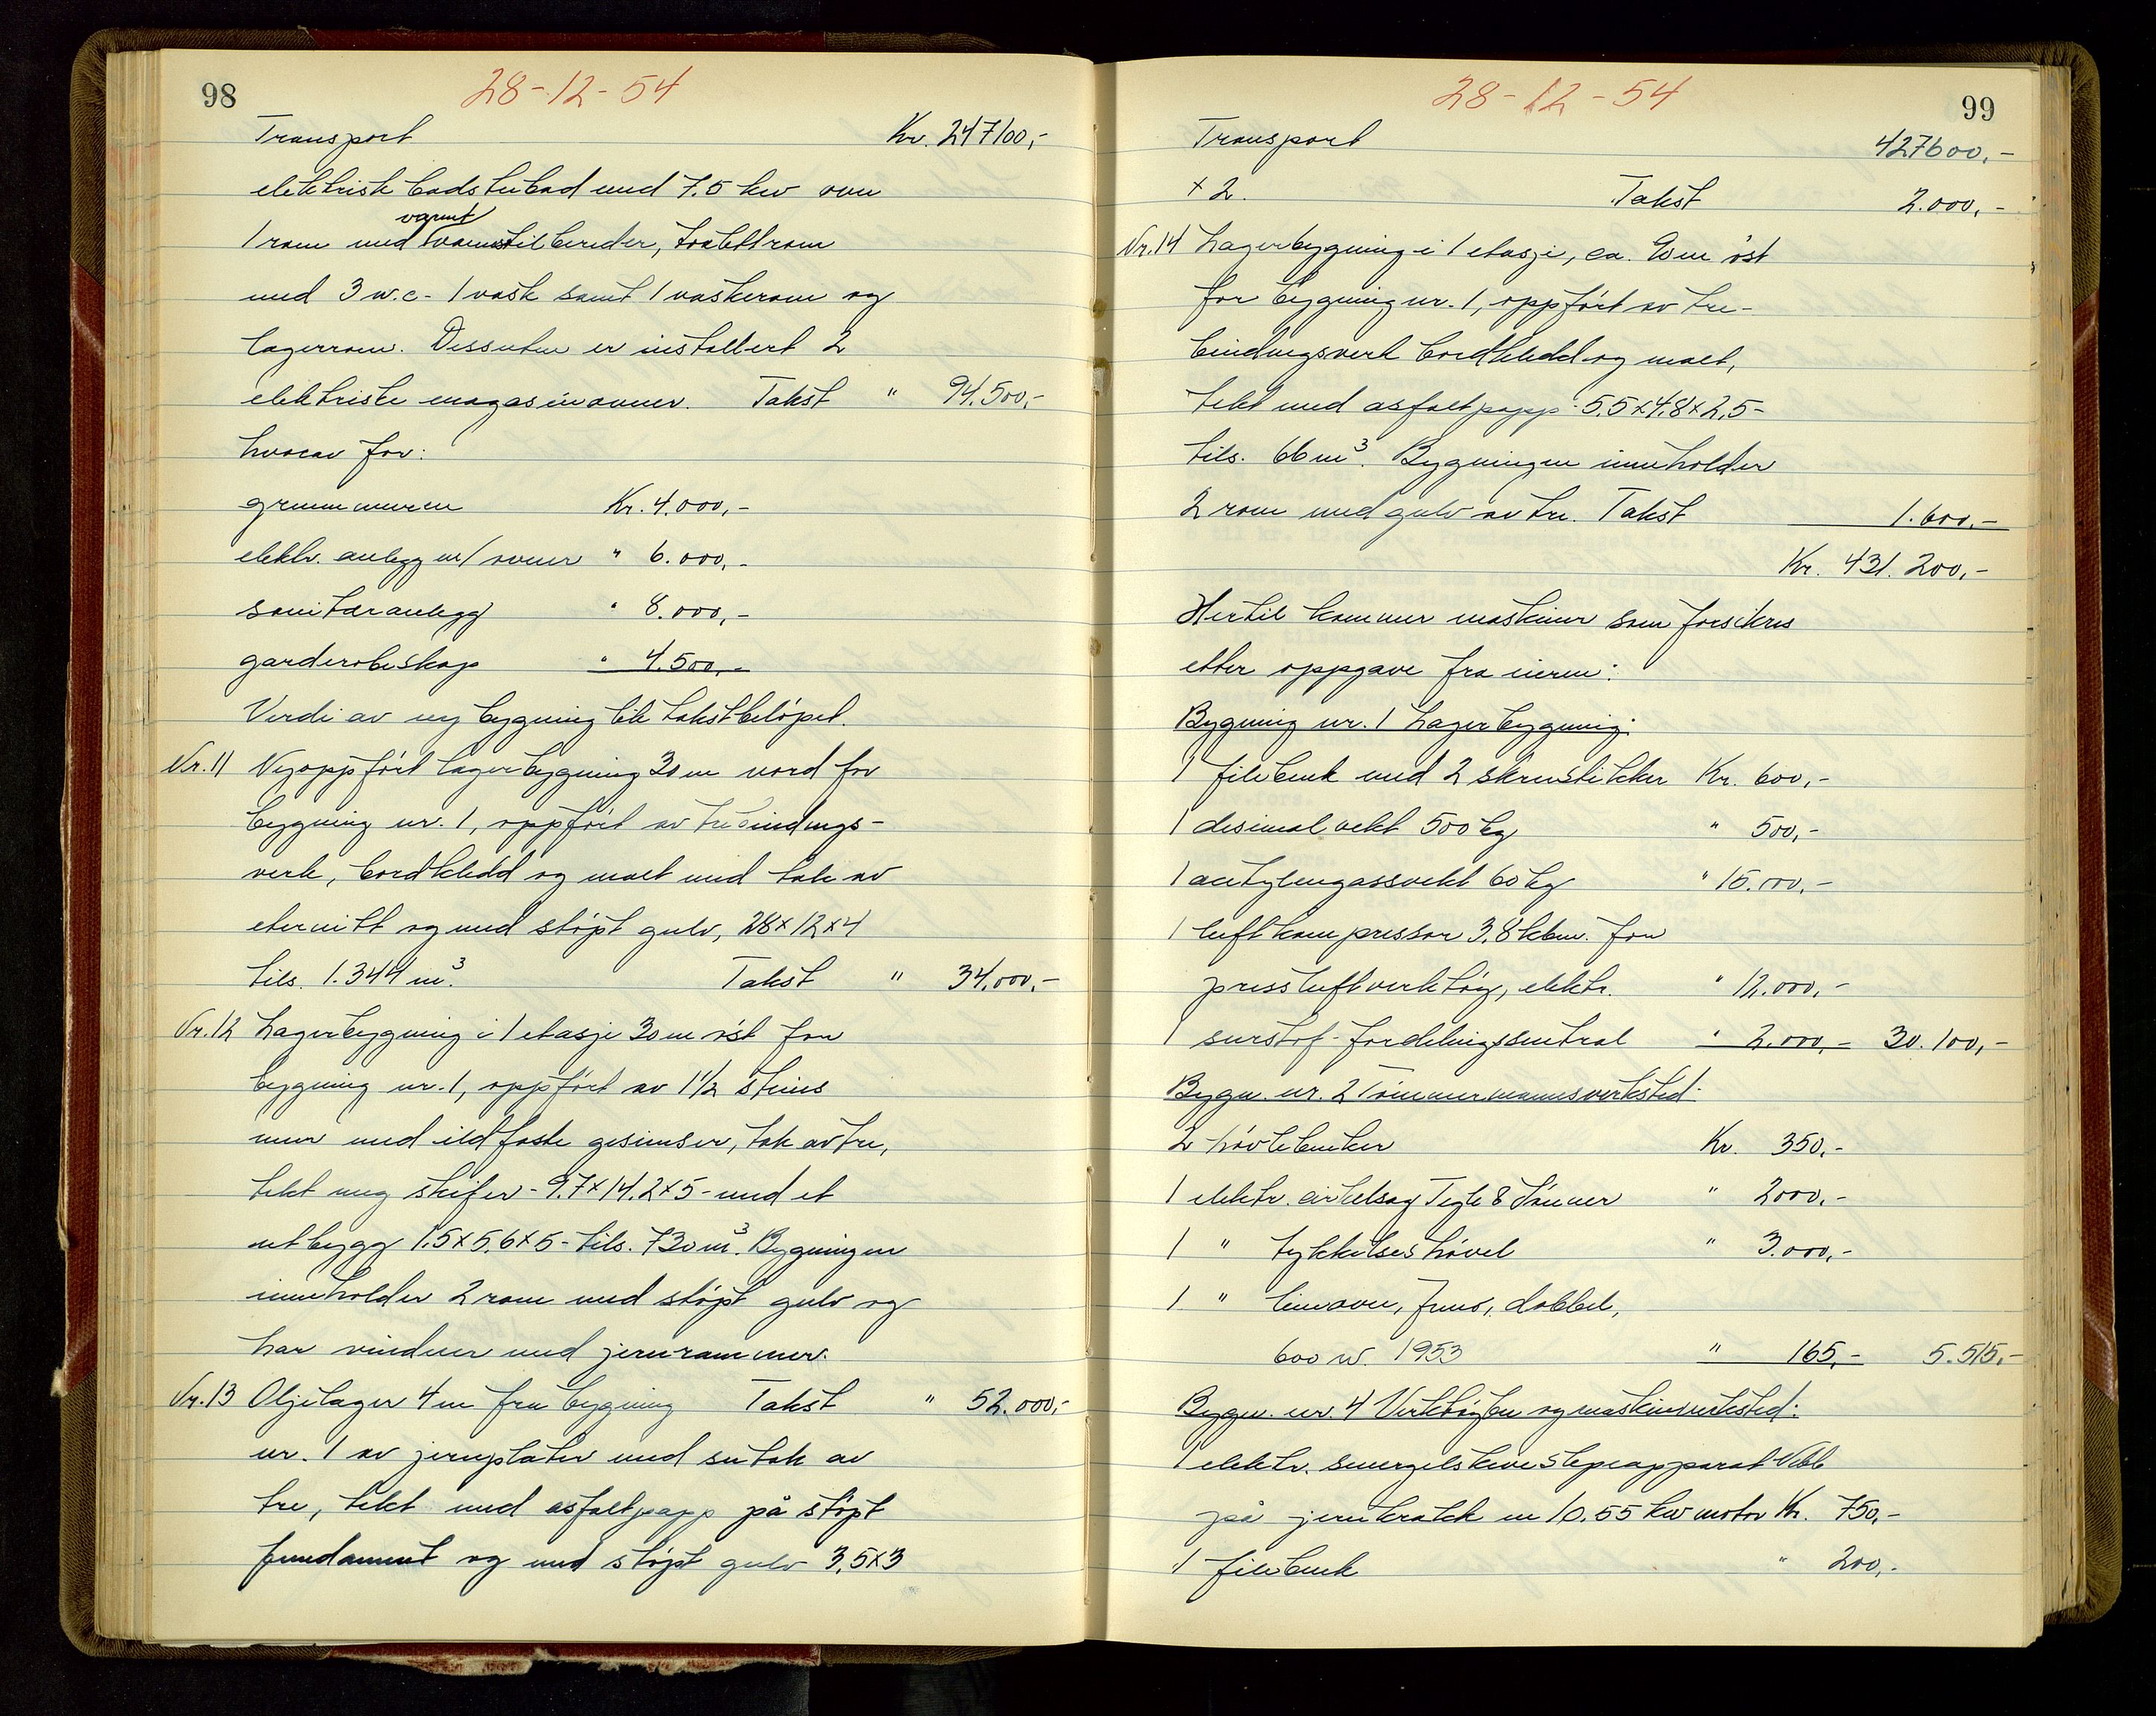 98
28-12-54
Transport Kr. 247100,-
elektrisk badstubad med 7.5 kw ovn
varmt
1 rom med vannstilbereder, toalettrom
med 3 w.c - 1 vask samt 1 vaskerom og
lagerrom. Dessuten er installert 2
elektriske magasinovner. Takst " 94.500,-
hvorav for:
grunnmuren Kr. 4.000,-
elektr. anlegg m/ ovner " 6.000,-
sanitæranlegg " 8.000,-
garderobeskap " 4.500,-
Verdi av ny bygning lik takstbeløpet.
Nr. 11 Nyoppført lagerbygning 30 m nord for
bygning nr. 1, oppført av trebindings-
verk, bordkledd og malt med tak av
eternitt og med støpt gulv, 28 x 12 x 4
tils. 1.344 m³. Takst " 34.000,-
Nr. 12 Lagerbygning i 1 etasje 30 m øst for
bygning nr. 1, oppført av 1 1/2 steins
mur med ildfaste gesimser, tak av tre,
tekt meg skifer - 9.7 x 14.2 x 5 - med et
utbygg 1.5 x 5.6 x 5 - tils. 730 m³. Bygningen
inneholder 2 rom med støpt gulv og
har vinduer med jernrammer.
Nr. 13 Oljelager 4 m fra bygning Takst " 52.000,-
nr. 1 av jernplater med sutak av
tre, tekt med asfaltpapp på støpt
fundament og med støpt gulv 3,5 x 3
99
28-12-54
Transport 427600,-
x 2. Takst 2.000,-
Nr. 14 Lagerbygning i 1 etasje, ca. 90 m øst
for bygning nr. 1, oppført av tre-
bindingsverk bordkledd og malt,
tekt med asfaltpapp - 5.5 x 4.8 x 2.5 -
tils. 66 m³. Bygningen inneholder
2 rom med gulv av tre. Takst 1.600,-
Kr. 431.200,-
Hertil kommer maskiner som forsikres
etter oppgave fra eieren:
Bygning nr. 1 Lagerbygning:
1 filebenk med 2 skrustikker Kr. 600,-
1 desimalvekt 500 kg " 500,-
1 acetylengassvekt 60 kg " 15.000,-
1 luftkompressor 3,8 kbm. for
pressluftverktøy, elektr. " 12.000,-
1 surstof-fordelingssentral " 2.000,- 30.100,-
Bygn. nr. 2 Tømmermannsverksted:
2 høvlebenker Kr. 350,-
1 elektr. cirkelsag Tegle & Sønner " 2000,-
1 " tykkelseshøvel " 3.000,-
1 " limovn, Juno, dobbel,
600 w. 1953 " 165,- 5.515,-
Bygn. nr. 4 Verktøybu og maskinverksted:
1 elektr. smergelskive slipeapparat
på jernkrakk m/0.55 kw motor Kr. 750,-
1 filebenk " 200,-